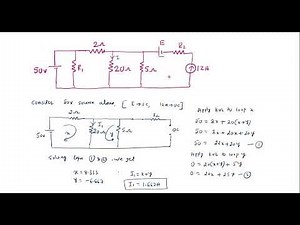 2Ω E R₂
50V R₁ I 20Ω 5Ω 12A
Consider 50V source alone [ E → SC, 12A → OC ]
50V 2Ω I₁ 20Ω 5Ω R₂ OC
x y
Solving eqn ① & ② we get
x = 8.333 I₁ = x+y
y = -6.667 I₁ = 1.667A
Apply KVL to loop x
50 = 2x + 20(x+y)
50 = 2x + 20x + 20y
50 = 22x + 20y — ①
Apply KVL to loop y
0 = 20(x+y) + 5y
0 = 20x + 25y — ②